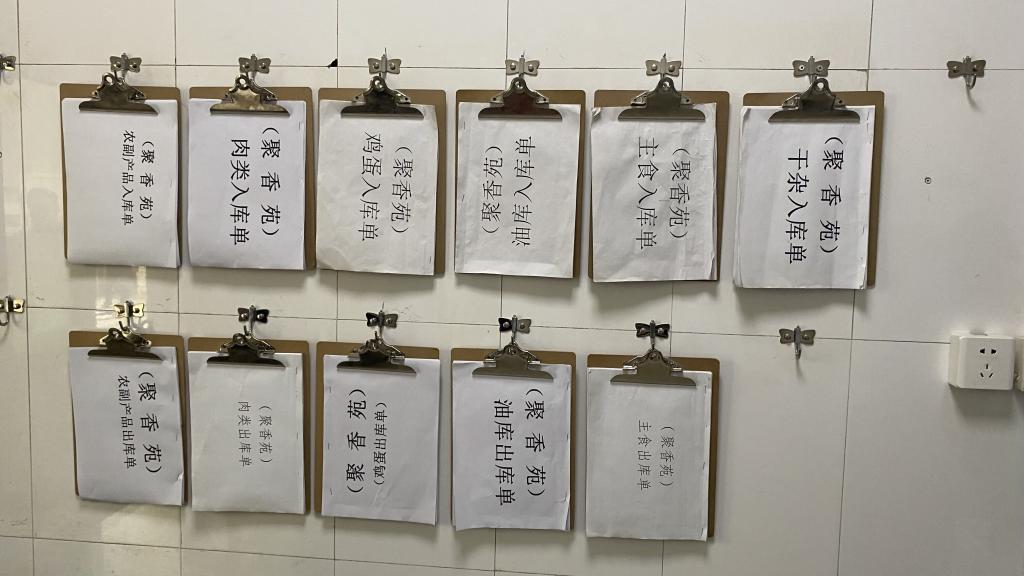 (聚香苑)
农副产品入库单
(聚香苑)
肉类入库单
(聚香苑)
鸡蛋入库单
(聚香苑)
油库入库单
(聚香苑)
主食入库单
(聚香苑)
干杂入库单
(聚香苑)
农副产品出库单
(聚香苑)
肉类出库单
(聚香苑)
(鸡蛋出库单)
(聚香苑)
油库出库单
(聚香苑)
主食出库单